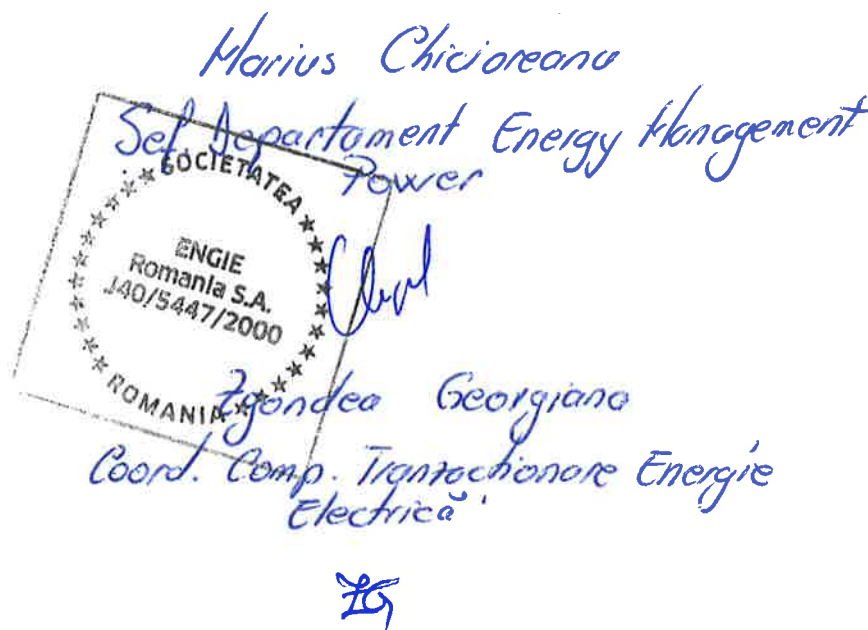 Marius Chicioreanu
Șef Departament Energy Management
Power
SOCIETATEA
ENGIE
Romania S.A.
J40/5447/2000
ROMANIA
Zgondea Georgiana
Coord. Comp. Tranzacționare Energie
Electrică
ZG